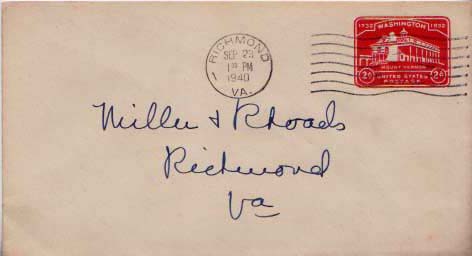 RICHMOND
SEP 23
1 PM
1940
VA.
1732 WASHINGTON 1932
MOUNT VERNON
2¢ UNITED STATES 2¢
POSTAGE
Miller & Rhoads
Richmond
Va